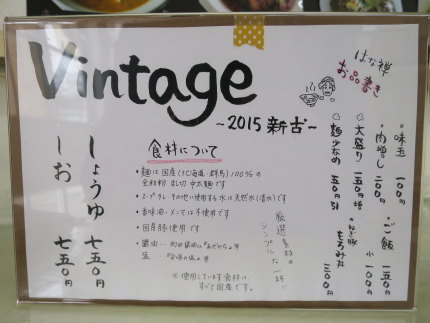 Vintage
～2015 新古～
はな禅
お品書き
・味玉 一〇〇円
・肉増し 二〇〇円
◇大盛り 一五〇円増
◇麺少なめ 五〇円引
・ご飯 一五〇円
小 一〇〇円
・ねぎ豚もろみ丼
三〇〇円
食材について
・麺は国産(北海道・群馬)100%の
全粒粉 乱切 中太麺です
・スープ、タレ、その他に使用する水は天然水(清水)です
・香味油・メンマは不使用です
・国産豚使用です
・醤油…
塩…
※使用しています食材は、
すべて国産です。
厳選素材の
シンプルな一杯!!
しょうゆ 七五〇円
しお 七五〇円